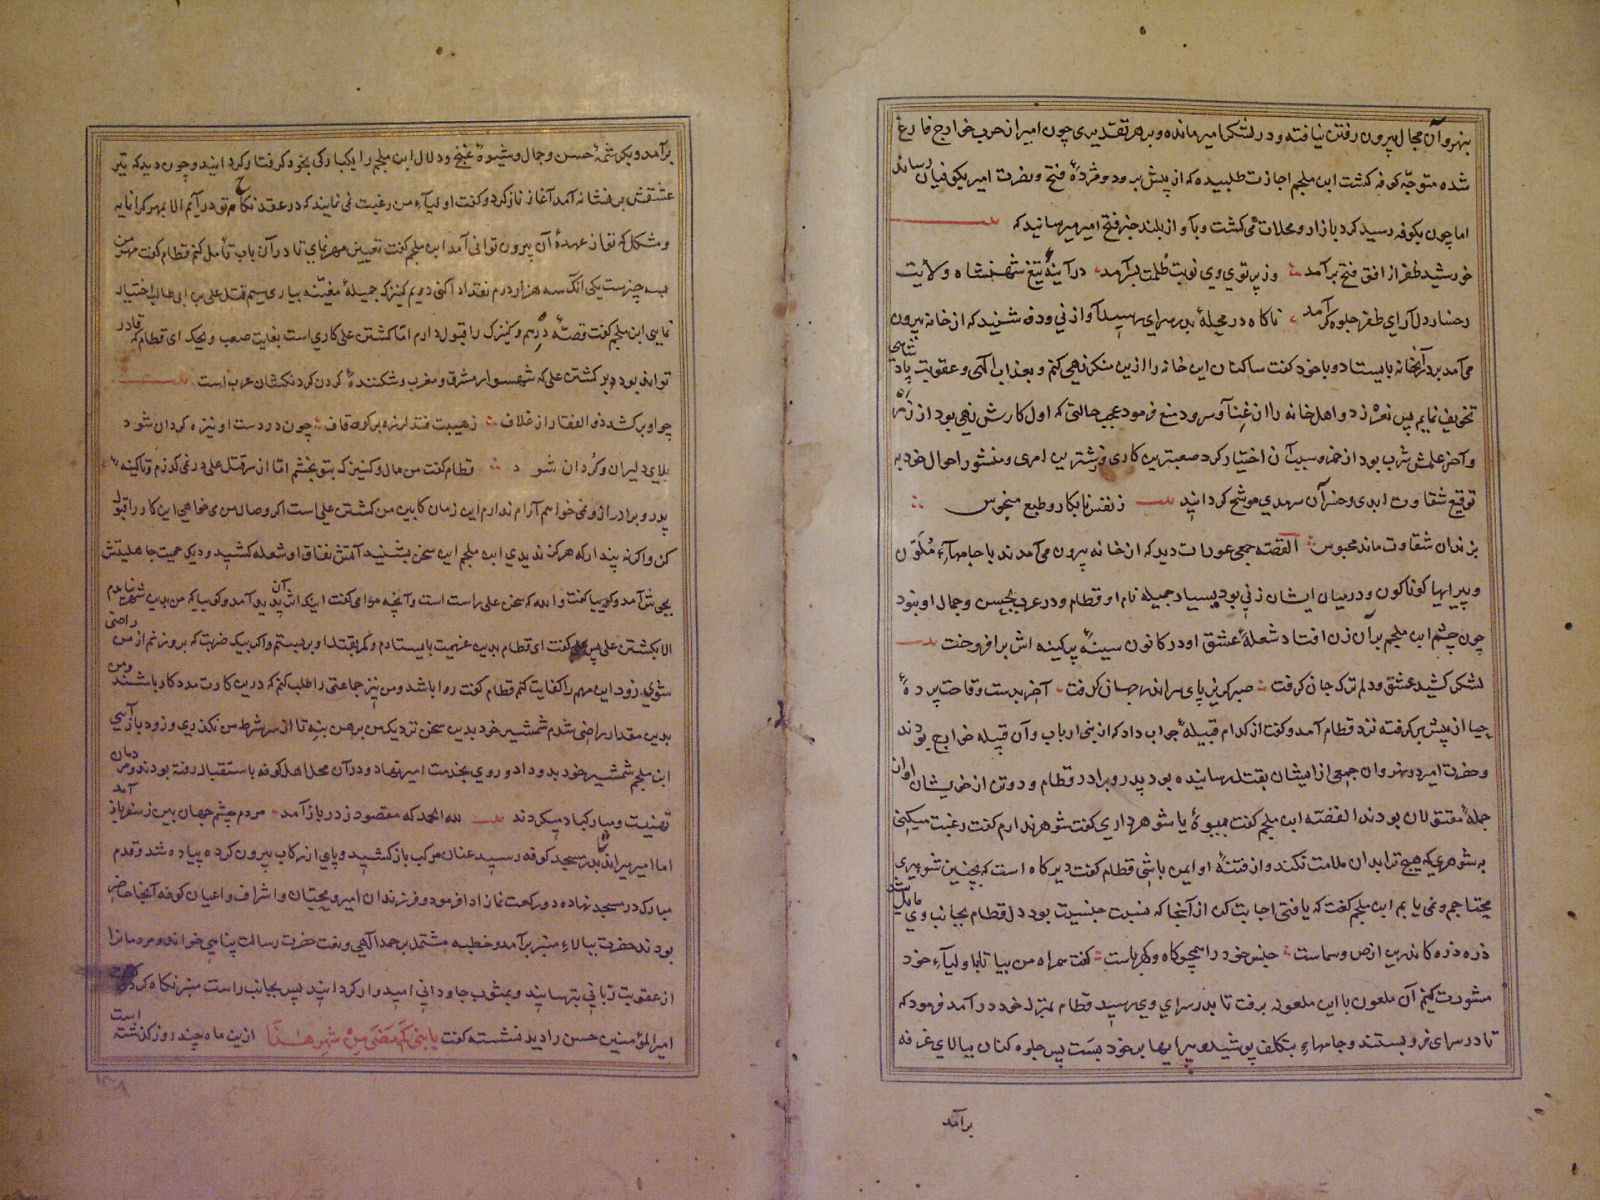 بنهروان مجال بیرون رفتن نیافته و در لشکر امیر مانده و بر هر تقدیری چون امیر از حرب خوارج فارغ
شده متوجّه کوفه گشت ابن ملجم اجازت طلبیده که از پیش برود و مژدهٔ فتح و نصرت امیر بکوفیان رساند
اما چون بکوفه رسید گرد بازار و محلات می گشت و بآواز بلند خبر فتح امیر میرسانید که
خورشید ظفر از افق فتح برآمد وز پرتوی وی نوبت ظلمت بسرآمد در آینهٔ تیغ شهنشاه ولایت
رخسار دل آرای ظفر جلوه گر آمد ناگاه در محلهٔ بدر سرای رسید آواز نی و دف شنید که از خانه بیرون
می آمد بر در آنخانه بایستاد و با خود گفت ساکنان این خانه را ازین منکر نهی کنم و بعذاب الهی و عقوبت پادشاهی
تخویف نمایم پس نعره زد و اهل خانه را از غنا و سرود منع فرمود عجب حالتی که اول کارش نهی بود از زمره
و آخر عملش شرب بود از خمر و سبب آن اختیار کرد صعبترین کاری و زشترین امری و منشور احوال خود به
توقیع شقاوت ابدی و خسران سرمدی موشح گردانید ز نفس نابکار و طبع منحوس
بزندان شقاوت ماند محبوس القصّه جمعی عورات دید که از خانه بیرون می آمدند با جامهاء مُلَوّن
و پیرایهاء گوناگون و در میان ایشان زنی بود بسیار جمیله نام او قطام و در عرب بحسن و جمال او نبود
چون چشم ابن ملجم بر آن زن افتاد شعلهٔ عشق او در کانون سینهٔ پرکینه اش برافروخت
لشکر کشید عشق و دلم ترک جان گرفت صبر گریز پای سر اندر جهان گرفت آخر بدست وقاحت پردهٔ
حیا از پیش برگرفته نزد قطام آمد و گفت از کدام قبیلهٔ جواب داد که از بنی ارباب و آن قبیله خوارج بودند
و حضرت امیر در نهروان جمعی از ایشان بقتل رسانیده بود پدر و برادر قطام و دو تن از خویشان او از ان
جملهٔ مقتولان بودند القصّه ابن ملجم گفت بیوهٔ یا شوهر داری گفت شوهر ندارم گفت رغبت میکنی
به شوهری که هیچ ترا بدان ملامت نکند و از فتنهٔ او ایمن باشی قطام گفت دیر گاه است که بچنین شوهری
محتاجم و نمی یابم ابن ملجم گفت که یافتی اجابت کن از آنجا که نسبت جنسیت بود دل قطام بجانب وی مایل شد
ذره ذره کاندرین ارض و سماست جنس خود را همچو کاه و کهرباست گفت همراه من بیا تا با اولیاء خود
مشورت کنم آن ملعون با این ملعونه برفت تا بدر سرای وی رسید قطام بمنزل خود درآمد فرمود که
تا در سرای فروبستند و جامهاء بتکلف پوشید و پیرایها بر خود بست پس جلوه کنان ببالای غرفه
برآمد
برآمد و بکرشمهٔ حسن و جمال و شیوهٔ غنج و دلال ابن ملجم را یکبارگی بخود گرفتار گردانید و چون دید که تیر
عشقش بر نشانه آمد آغاز ناز کرد و گفت اولیاء من رغبت نمی نمایند که در عقد نکاح تو درآیم الا بمهر گرانمایه
و مشکل که تو از عهدهٔ آن بیرون توانی آمد ابن ملجم گفت تعیین مهر نمای تا در آن باب تأمل کنم قطام گفت مهر من
سه چیزست یکی آنکه سه هزار درم نقد ادا کنی دویم کنیزک جمیلهٔ مغنّیه بیاری سیم قتل علی بن ابی طالب اختیار
نمایی ابن ملجم گفت قصّهٔ درهم و کنیزک را قبول دارم امّا کشتن علی کاری است بغایت صعب ویحک ای قطام که قادر
تواند بود بر کشتن علی که شهسوار مشرق و مغرب و شکنندهٔ گردن گردنکشان عرب است
چو او برکشد ذوالفقار از غلاف ز هیبت فتد لرزه بر کوه قاف چون در دست او نیزه گردان شود
بلای دلیران و گردان شود قطام گفت من مال و کنیز که بتو بخشم امّا از سر قتل علی در نمی گذرم و تا کینه
پدر و برادر از وی نخواهم آرام ندارم این زمان کابین من کشتن علی است اگر وصال من می خواهی این کار را قبول
کن و اگرنه پندار که هرگز ندیدی ابن ملجم این سخن بشنید آتش نفاق او شعله کشید و دیگ حمیت جاهلیتش
بجوش آمد و گفت والله که سخن علی راست است و آنچه مرا می گفت اینک اثر آن پدید آمد و گوییا که من بدین شهر نیامدم
الا بکشتن علی پس گفت ای قطام بدین عزیمت بایستادم و کمر بقتل او بر بستم و اگر بیک ضربت که برو زنم از من راضی
شوی زود این مهم را کفایت کنم قطام گفت روا باشد و من نیز جماعتی را طلب کنم که درین کار ترا مددکار باشند و من
بدین مقدار راضی شدم شمشیر خود بدین سخن نزدیک من برهن بنه تا از سر شرط من نگذری و زود بازآیی
ابن ملجم شمشیر خود بدو داد و روی بخدمت امیر نهاد و در آن محل اهل کوفه باستقبال رفته بودند و مردمان
تهنیت و مبارکباد میکردند لله الحمد که مقصود ز در باز آمد مردم چشم جهان بین ز سفر باز آمد
اما امیر میراند تا بدر مسجد کوفه رسید عنان مرکب باز کشید و پای از رکاب بیرون کرده پیاده شد و قدم
مبارک در مسجد نهاده دو رکعت نماز ادا فرمود و فرزندان امیر و محبّان و اشراف و اعیان کوفه آنجا حاضر
بودند حضرت ببالاء منبر برآمد و خطبه مشتمل بر حمد الهی و نعت حضرت رسالت پناهی خواند و مردمانرا
از عقوبت ربّانی بترسانید و بمثوبت جاودانی امیدوار گردانید پس بجانب راست منبر نگاه کرد
امیرالمؤمنین حسن را دید نشسته گفت یا بنی کم مضی من شهر هذا ازین ماه چند روز گذشته است